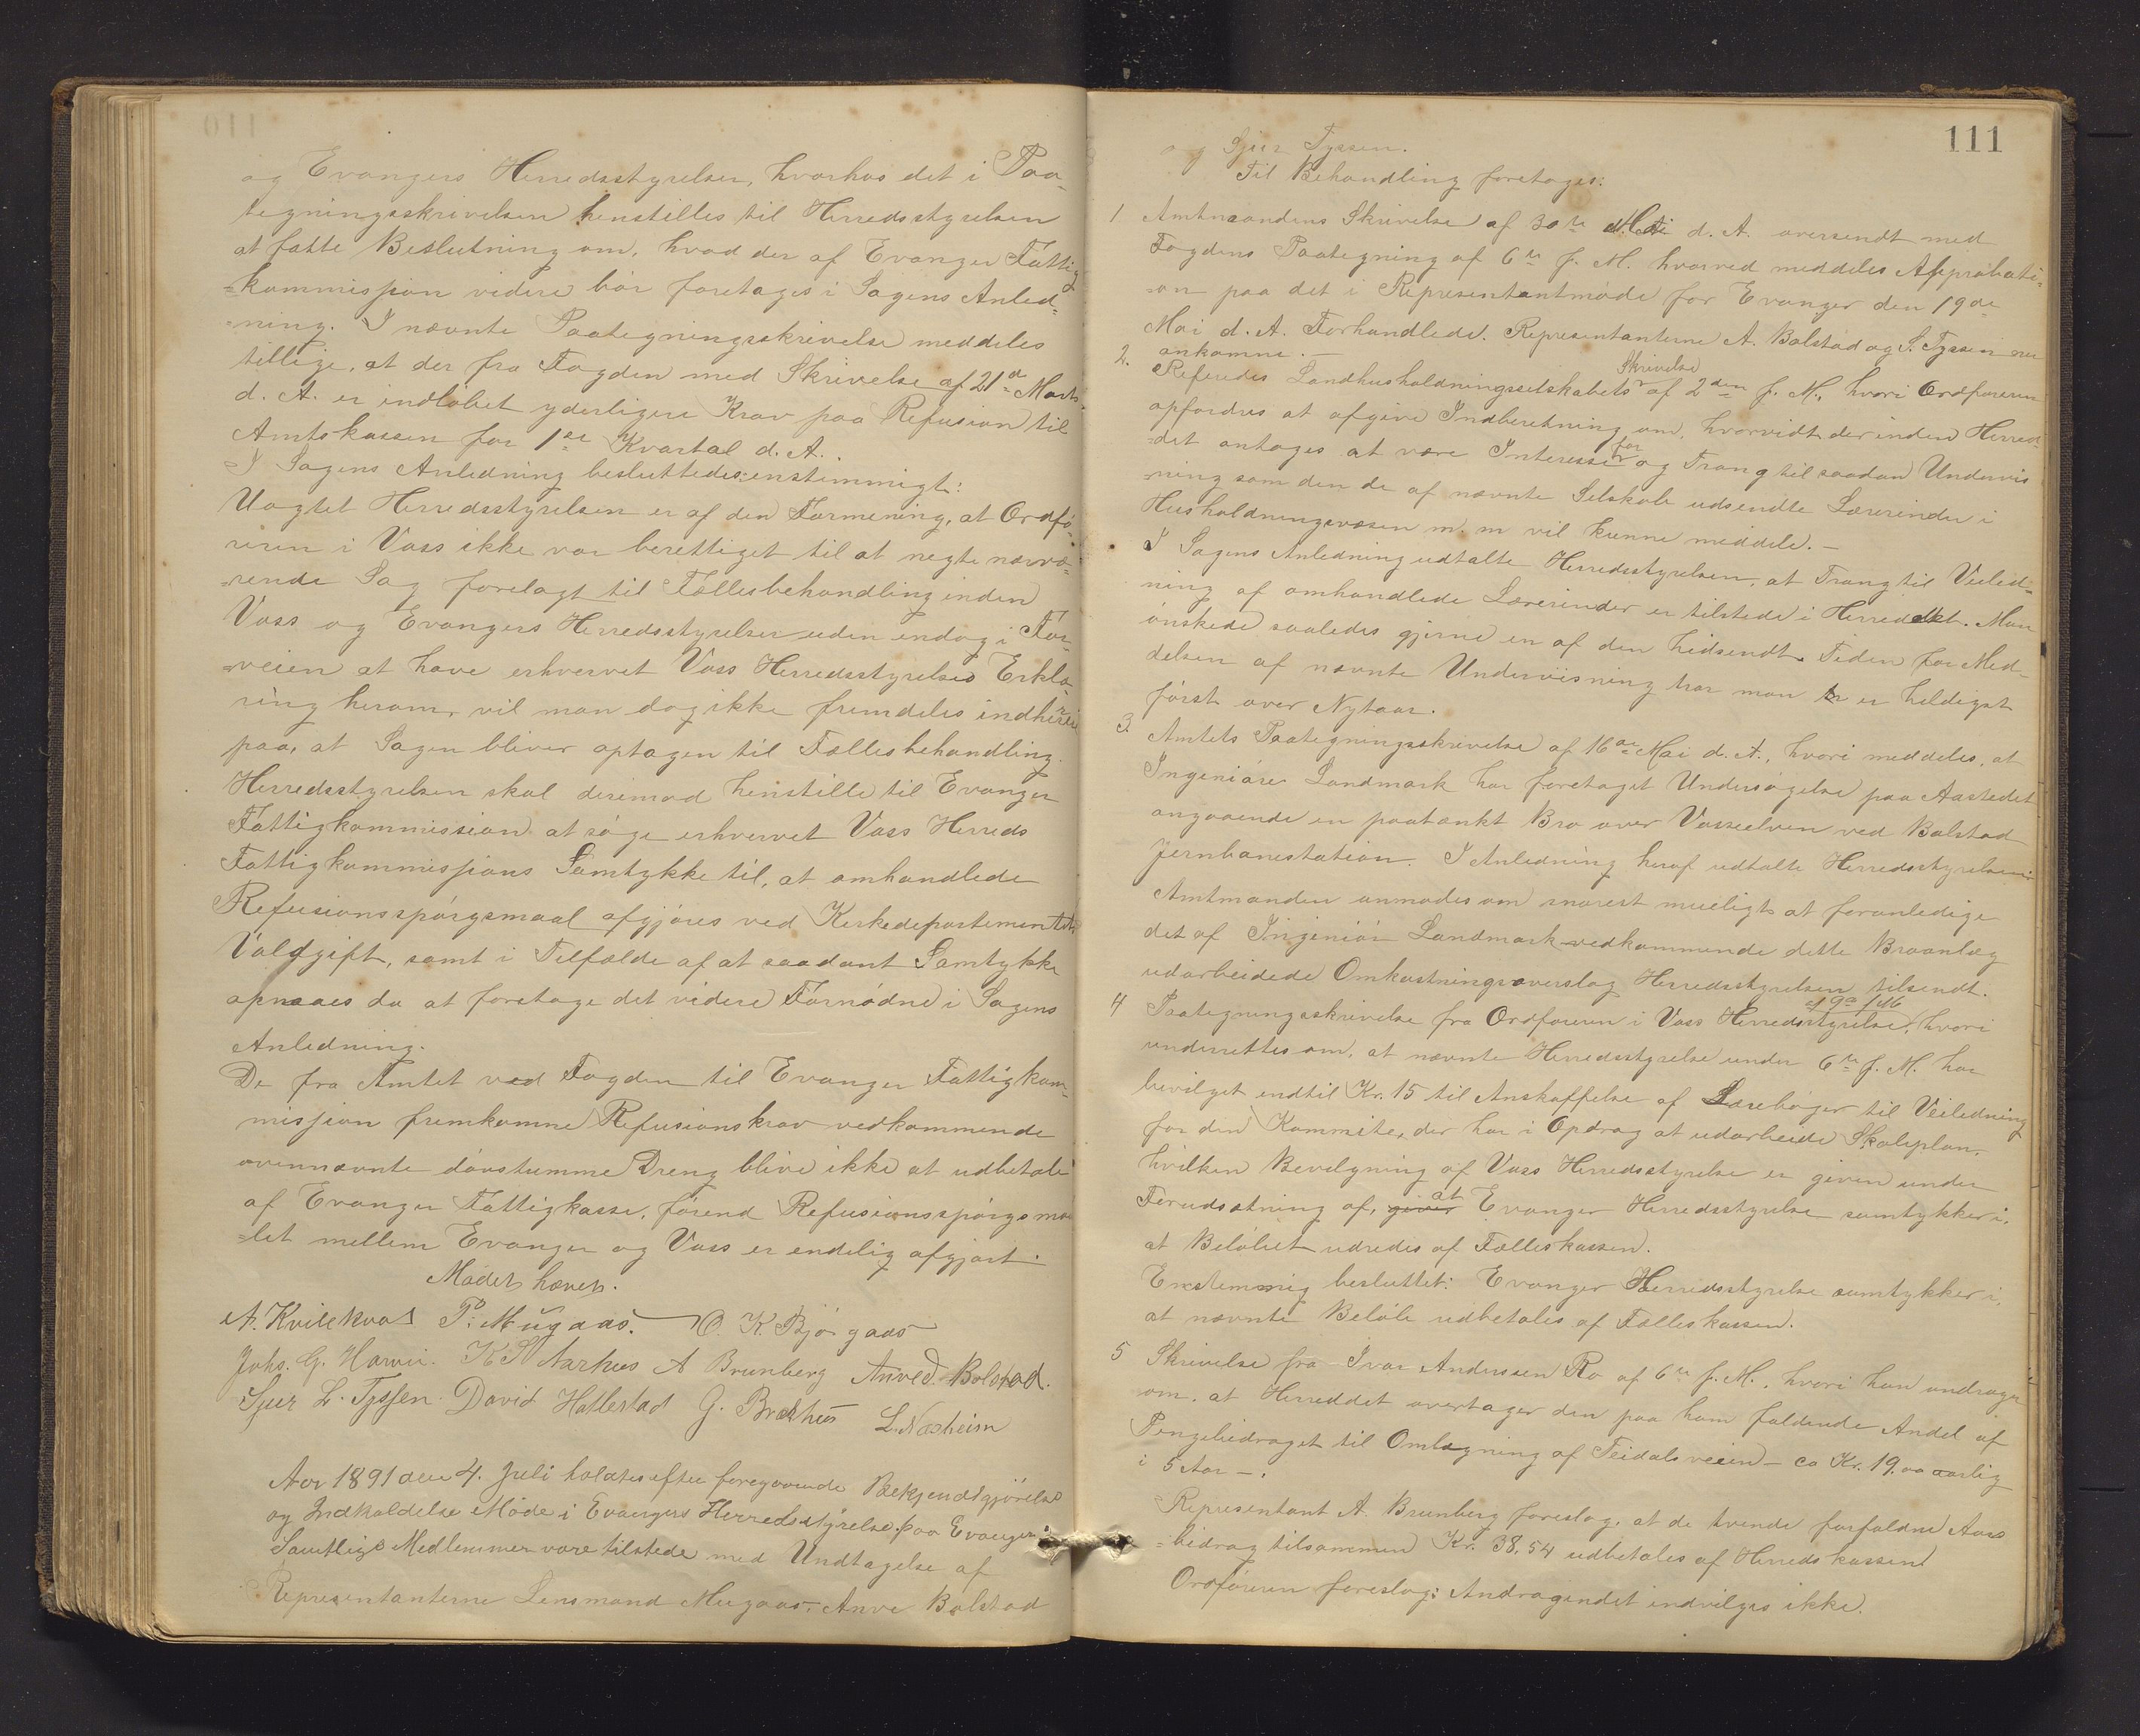 og Evangers Herredsstyrelser, hvorhos det i Paa-
tegningsskrivelsen henstilles til Herredsstyrelsen
at fatte Beslutning om, hvad der af Evanger Fattig
-kommission videre bör foretages i Sagens Anled-
-ning. I nævnte Paategningsskrivelse meddeles
tillige, at der fra Fogden med Skrivelse af 21de Marts
d. A. er indlöbet yderligere Krav paa Refusion til
Amtskassen for 1ste Kvartal d. A.
I Sagens Anledning besluttedes enstemmigt:
Uagtet Herredsstyrelsen er af den Formening, at Ordfö-
reren i Voss ikke var berettiget til at negte nærvæ-
-rende Sag forelagt til Fællesbehandling inden
Voss og Evangers Herredsstyrelser uden endog i For-
-veien at have erhvervet Voss Herredsstyrelses Erklæ-
ring herom, vil man dog ikke fremdeles indhere
paa, at Sagen bliver optagen til Fællesbehandling.
Herredsstyrelsen skal derimod henstille til Evanger
Fattigkommission at söge erhvervet Voss Herreds
Fattigkommissions Samtykke til, at omhandlede
Refusionsspörgsmaal afgjöres ved Kirkedepartementets
Voldgift, samt i Tilfælde af at saadant Samtykke
opnaaes da at foretage det videre Fornödne i Sagens
Anledning.
De fra Amtet ved Fogden til Evanger Fattigkom-
mission fremkomne Refusionskrav vedkommende
ovennævnte dövstumme Dreng blive ikke at udbetale
af Evanger Fattigkasse, förend Refusionsspörgsmaa
-let mellem Evanger og Voss er endelig afgjort.
Mödet hævet.
A. Kvilekval P. Mugaas. O. K. Björgaas
Johs. G. Horvei. K S Aarhus A Brunborg Anved Bolstad.
Sjur L. Tyssen David Hallestad G. Brekhus L. Næsheim
Aar 1891 den 4. Juli holdtes efter foregaaende Bekjendtgjörelse
og Indkaldelse Möde i Evangers Herredsstyrelse paa Evanger.
Samtlige Medlemmer vare tilstede med Undtagelse af
Repræsentanterne Lensmand Mugaas, Anve Bolstad
111
og Sjur Tyssen.
Til Behandling foretoges:
1. Amtmandens Skrivelse af 30te Mai d. A. oversendt med
Fogdens Paategning af 6te f. M. hvorved meddeles Approbati-
-on paa det i Repræsentantmöde for Evanger den 19de
Mai d. A. Forhandlede. Repræsentanterne A. Bolstad og S. Tyssen nu
ankomne.-
2. Referedes Landhusholdningsselskabets Skrivelse af 2den f. M., hvori Ordföreren
opfordres at afgive Indberetning om, hvorvidt der inden Herred-
-det antages at være Interesse for og Trang til saadan Undervis
-ning som den de af nævnte Selskab udsendte Lærerinder i
Husholdningsvæsen m. m vil kunne meddele.-
I Sagens Anledning udtalte Herredsstyrelsen, at Trang til Veiled-
ning af omhandlede Lærerinder er tilstede i Herredet. Man
önskede saaledes gjerne en af dem hidsendt. Tiden for Med-
delsen af nævnte Undervisning tror man er heldigst
först over Nytaar.
3. Amtets Paategningsskrivelse af 16de Mai d. A., hvori meddeles, at
Ingeniörer Landmark har foretaget Undersögelse paa Aastedet
angaaende en paatænkt Bro over Vosseelven ved Bolstad
Jernbanestation. I Anledning heraf udtalte Herredsstyrelsen
Amtmanden anmodes om snarest mueligt at foranledige
det af Ingeniör Landmark vedkommende dette Broanlæg
udarbeidede Omkostningsoverslag Herredsstyrelsen tilsendt.
4 Paategningsskrivelse fra Ordföreren i Voss Herredsstyrelse, af 9de f M hvori
underrettes om, at nævnte Herredsstyrelse under 6te f. M. har
bevilget indtil Kr. 15 til Anskaffelse af Lærebøger til Veiledning
for den Kommite, der har i Opdrag at udarbeide Skoleplan,
hvilken Bevilgning af Voss Herredsstyrelse er given under
Forudsætning af, giver at Evanger Herredsstyrelse samtykker i,
at Belöbet udredes af Fælleskassen.
Enstemmig besluttet: Evanger Herredsstyrelse samtykker i,
at nævnte Belöb udbetales af Fælleskassen.
5 Skrivelse fra Ivar Anderssen Ro af 6te f. M., hvori han andrager
om, at Herreddet overtager den paa ham faldende Andel af
Pengebidraget til Omlægning af Teidalsveien - ca Kr. 19.00 aarlig
i 5 Aar -.
Repræsentant A. Brunborg foreslog, at de tvende forfaldne Aars
-bidrag tilsammen Kr. 38,54 udbetales af Herredskassen
Ordföreren foreslog: Andragendet indvilges ikke.